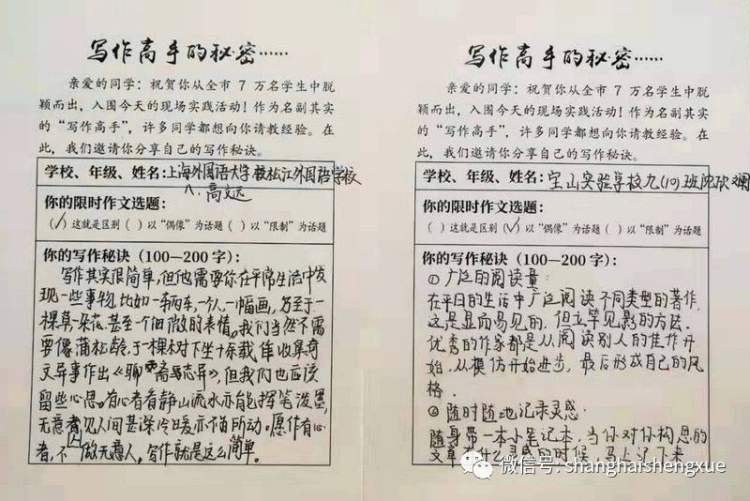 写作高手的秘密……
亲爱的同学：祝贺你从全市 7 万名学生中脱
颖而出，入围今天的现场实践活动！作为名副其实
的“写作高手”，许多同学都想向你请教经验。在
此，我们邀请你分享自己的写作秘诀。
学校、年级、姓名：上海外国语大学 松江外国语学校
高文远
你的限时作文选题：
(✓) 这就是区别 ( ) 以“偶像”为话题 ( ) 以“限制”为话题
你的写作秘诀（100—200 字）：
写作其实很简单，但他需要你在平常生活中发
现一些事物，比如一车两车，一个人，一幅画，乃至于一
棵草一朵花，甚至一个细微的表情。我们当然不需
要像蒲松龄，于一棵树下坐十余载，集奇
文异事作出《聊斋志异》，但我们也应该
留些心思。有心者看静山流水亦能挥笔泼墨，
无意者见人间甚深冷暖亦有所动。愿作有心
者，不做无意人，写作就是这么简单。
写作高手的秘密……
亲爱的同学：祝贺你从全市 7 万名学生中脱
颖而出，入围今天的现场实践活动！作为名副其实
的“写作高手”，许多同学都想向你请教经验。在
此，我们邀请你分享自己的写作秘诀。
学校、年级、姓名：宝山实验学校九(10)班沈欣
你的限时作文选题：
( ) 这就是区别 (✓) 以“偶像”为话题 ( ) 以“限制”为话题
你的写作秘诀（100—200 字）：
① 广泛的阅读量：
在平日的生活中广泛阅读不同类型的著作，
这是显而易见的，但立竿见影的方法。
优秀的作家都是从阅读别人的佳作开
始，从模仿开始进步，最后形成自己的风
格.
② 随时随地记录灵感：
随身带一本小笔记本，当你对你构思的
文章有什么灵感的时候，马上记下来
微信号：shanghaishengxue